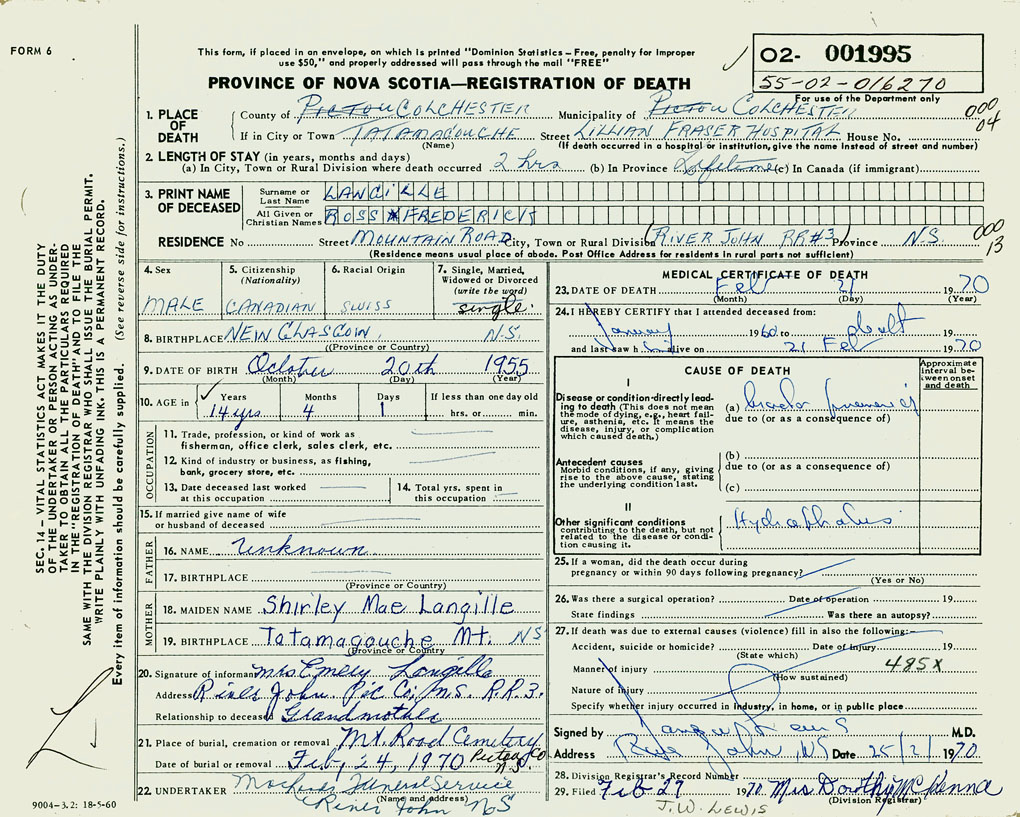 FORM 6
This form, if placed in an envelope, on which is printed "Dominion Statistics – Free, penalty for improper
use $50," and properly addressed will pass through the mail "FREE"
PROVINCE OF NOVA SCOTIA—REGISTRATION OF DEATH
02- 001995
55-02-016270
For use of the Department only
000
04
1. PLACE OF DEATH
County of PICTOU COLCHESTER Municipality of PICTOU COLCHESTER
If in City or Town TATAMAGOUCHE Street LILLIAN FRASER HOSPITAL House No.
(Name) (If death occurred in a hospital or institution, give the name instead of street and number)
2. LENGTH OF STAY (in years, months and days)
(a) In City, Town or Rural Division where death occurred 2 hrs (b) In Province Lifetime (c) In Canada (if immigrant)
3. PRINT NAME OF DECEASED
Surname or Last Name LANGILLE
All Given or Christian Names ROSS FREDERICK
RESIDENCE No Street MOUNTAIN ROAD City, Town or Rural Division (RIVER JOHN RR#3) Province N.S.
000
13
(Residence means usual place of abode. Post Office Address for residents in rural parts not sufficient)
4. Sex
MALE
5. Citizenship
(Nationality)
CANADIAN
6. Racial Origin
SWISS
7. Single, Married, Widowed or Divorced
(write the word)
single
8. BIRTHPLACE NEW GLASGOW, N.S.
(Province or Country)
9. DATE OF BIRTH October 20th 1955
(Month) (Day) (Year)
10. AGE in Years Months Days If less than one day old
14 yrs 4 1 hrs. or min.
OCCUPATION
11. Trade, profession, or kind of work as
fisherman, office clerk, sales clerk, etc.
12. Kind of industry or business, as fishing,
bank, grocery store, etc.
13. Date deceased last worked
at this occupation
14. Total yrs. spent in
this occupation
15. If married give name of wife
or husband of deceased
FATHER
16. NAME Unknown
17. BIRTHPLACE
(Province or Country)
MOTHER
18. MAIDEN NAME Shirley Mae Langille
19. BIRTHPLACE Tatamagouche Mt. NS
(Province or Country)
20. Signature of informant Mrs Emery Langille
Address River John Pic Co, N.S. R.R.3.
Relationship to deceased Grandmother
21. Place of burial, cremation or removal Mt. Road Cemetery
Date of burial or removal Feb, 24, 1970 Pictou Co N.S.
22. UNDERTAKER Funeral Service
(Name and address)
River John N S
MEDICAL CERTIFICATE OF DEATH
23. DATE OF DEATH Feb 21 1970
(Month) (Day) (Year)
24. I HEREBY CERTIFY that I attended deceased from:
January 1960 to death
and last saw h im alive on 21 Feb 1970
CAUSE OF DEATH
Approximate interval between onset and death
I
Disease or condition directly leading to death (This does not mean the mode of dying, e.g., heart failure, asthenia, etc. It means the disease, injury, or complication which caused death.)
(a)
due to (or as a consequence of)
Antecedent causes
Morbid conditions, if any, giving rise to the above cause, stating the underlying condition last.
(b)
due to (or as a consequence of)
(c)
II
Other significant conditions
contributing to the death, but not related to the disease or condition causing it.
Hydrocephalus
25. If a woman, did the death occur during
pregnancy or within 90 days following pregnancy?
(Yes or No)
26. Was there a surgical operation? Date of operation 19
State findings Was there an autopsy?
27. If death was due to external causes (violence) fill in also the following:—
Accident, suicide or homicide? Date of injury 19
(State which)
Manner of injury 485X
(How sustained)
Nature of injury
Specify whether injury occurred in industry, in home, or in public place
Signed by M.D.
Address River John, NS Date 25/2/1970.
28. Division Registrar's Record Number
29. Filed Feb 27 1970 Mrs Dorothy McKenna
(Division Registrar)
J.W. LEWIS
SEC. 14 – VITAL STATISTICS ACT MAKES IT THE DUTY
OF THE UNDERTAKER OR PERSON ACTING AS UNDER-
TAKER TO OBTAIN ALL THE PARTICULARS REQUIRED
IN THE "REGISTRATION OF DEATH" AND TO FILE THE
SAME WITH THE DIVISION REGISTRAR WHO SHALL ISSUE THE BURIAL PERMIT.
WRITE PLAINLY WITH UNFADING INK. THIS IS A PERMANENT RECORD.
Every item of information should be carefully supplied. (See reverse side for instructions.)
9004-3.2: 18-5-60